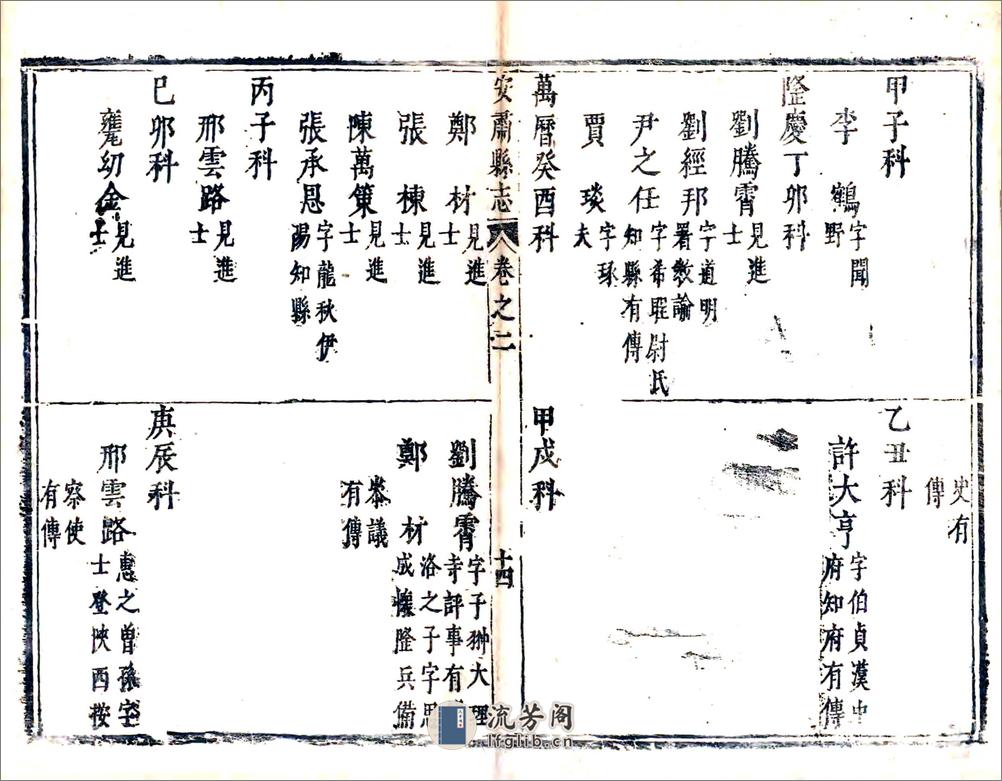 甲子科
李鶴 字聞野
隆慶丁卯科
劉騰霄 見進士
劉經邦 字道明署教諭
尹之任 字希尉氏知縣有傳
賈琰 字琢夫
萬曆癸酉科
史有傳
乙丑科
許大亨 字伯貞漢中府知府有傳
甲戌科
安肅縣志 卷之二 十四
鄭材 見進士
張棟 見進士
陳萬策 見進士
張承恩 字龍秋伊陽知縣
丙子科
邢雲路 見進士
己卯科
幼金 見進士
劉騰霄 字子翀大理寺評事有
鄭材 洛之子字思成懷隆兵備
叅議有傳
庚辰科
邢雲路 惠之曾孫字士登陝西按
察使有傳
流芳阁
lfglib.cn